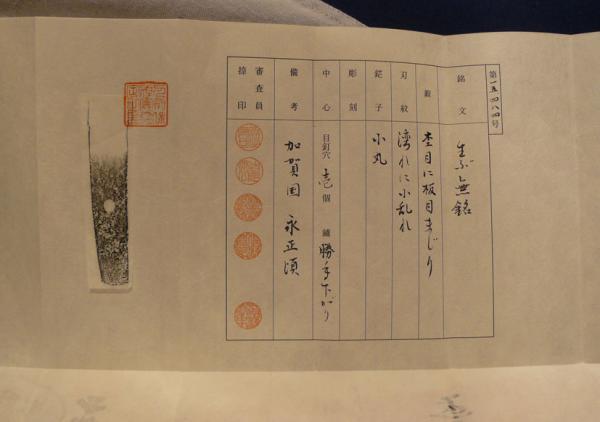 第一五四八四号
銘文 生ぶ無銘
鍛 杢目に板目まじり
刃紋 湾れに小乱れ
鋩子 小丸
彫刻
中心 目釘穴 壱 個 鑢 勝手下がり
備考 加賀国 永正頃
審査員
捺印